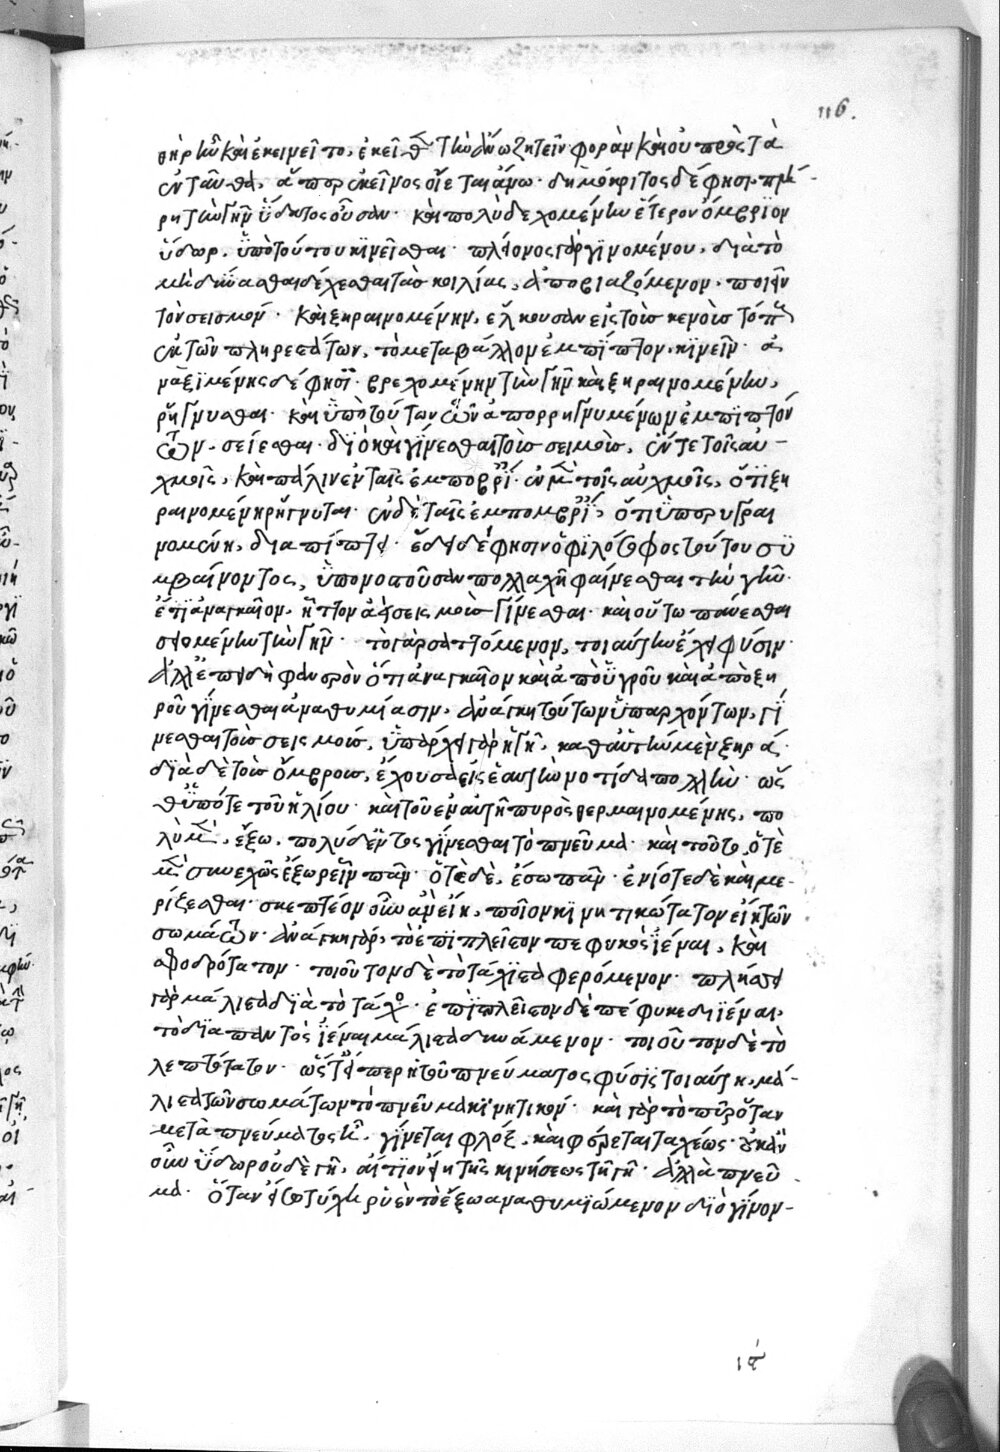 116.
θηρ κἂν καὶ ἐκινεῖτο, ἐκεῖθεν τὴν ἄνω ζητεῖν φορὰν καὶ οὐ πρὸς τὰ
ἐνταῦθα, ἅπερ ἐκεῖνος οἴεται ἄνω· δημόκριτος δέ φησι, πλή-
ρη τὴν γῆν ὕδατος οὖσαν· καὶ πολὺ δεχομένην ἕτερον ὄμβριον
ὕδωρ, ὑπὸ τούτου κινεῖσθαι· πλείονος γὰρ γινομένου, διὰ τὸ
μὴ δύνασθαι δέχεσθαι τὰς κοιλίας, ἀποβιαζόμενον, ποιεῖν
τὸν σεισμόν· καὶ ξηραινομένην, ἕλκουσαν εἰς τοὺς κενοὺς τόπους
ἐκ τῶν πληρεστάτων, τὸ μεταβάλλον ἐμπίπτον, κινεῖν· ἀ
ναξιμένης δέ φησι· βρεχομένην τὴν γῆν καὶ ξηραινομένην,
ρήγνυσθαι· καὶ ὑπὸ τούτων τῶν ἀπορρηγνυμένων ἐμπιπτόν
των, σείεσθαι· διὸ καὶ γίνεσθαι τοὺς σεισμοὺς, ἔν τε τοῖς αὐ-
χμοῖς, καὶ πάλιν ἐν ταῖς ἐπομβρίαις· ἐν μὲν τοῖς αὐχμοῖς, ὅτι ξη
ραινομένη ρήγνυται· ἐν δὲ ταῖς ἐπομβρίαις, ὅτι ὑπερυγραι
νομένη, διαπίπτει· ἔδει δέ φησιν ὁ φιλόσοφος τούτου συ
μβαίνοντος, ὑπονοστοῦσαν πολλαχῆ φαίνεσθαι τὴν γῆν·
ἔτι ἀναγκαῖον, ἧττον ἀεὶ σεισμοὺς γίνεσθαι· καὶ οὕτω παύεσθαι
σειομένην τὴν γῆν· τὸ γὰρ σαττόμενον, τοιαύτην ἔχει φύσιν·
ἀλλ' ἐπειδὴ φανερὸν ὅτι ἀναγκαῖον καὶ ἀπὸ ὑγροῦ καὶ ἀπὸ ξη
ροῦ γίνεσθαι ἀναθυμίασιν, ἀνάγκη τούτων ὑπαρχόντων, γί
νεσθαι τοὺς σεισμούς, ὑπάρχει γὰρ ἡ γῆ, καθ' αὑτὴν μὲν ξηρά·
διὰ δὲ τοὺς ὄμβρους, ἔχουσα εἰς ἑαυτὴν νοτίδα πολλήν· ὥς
θ' ὑπό τε τοῦ ἡλίου καὶ τοῦ ἐν αὐτῇ πυρὸς θερμαινομένης, πο
λὺ μὲν, ἔξω, πολὺ δ' ἐντὸς γίνεσθαι τὸ πνεῦμα· καὶ τοῦτο, ὁτὲ
μὲν συνεχῶς ἔξω ρεῖν πᾶν· ὁτὲ δὲ, ἔσω πᾶν· ἐνίοτε δὲ καὶ με-
ρίζεσθαι· σκεπτέον οὖν ἂν εἴη, ποῖον κινητικώτατον εἴη τῶν
σωμάτων· ἀνάγκη γὰρ, τὸ ἐπὶ πλεῖστον πεφυκὸς ἰέναι, καὶ
σφοδρότατον· τοιοῦτον δὲ τὸ τάχιστα φερόμενον· πλήσσει
γὰρ μάλιστα διὰ τὸ τάχος· ἐπὶ πλεῖστον δὲ πέφυκε διιέναι,
τὸ διὰ παντὸς ἰέναι μάλιστα δυνάμενον· τοιοῦτον δὲ τὸ
λεπτότατον· ὥστ' εἴπερ ἡ τοῦ πνεύματος φύσις τοιαύτη, μά-
λιστα τῶν σωμάτων τὸ πνεῦμα κινητικόν· καὶ γὰρ τὸ πῦρ ὅταν
μετὰ πνεύματος ᾖ, γίνεται φλὸξ, καὶ φέρεται ταχέως· οὐκ ἂν
οὖν ὕδωρ οὐδὲ γῆ, αἴτιον εἴη τῆς κινήσεως τῇ γῇ· ἀλλὰ πνεῦ
μα· ὅταν εἴσω τύχῃ ῥυὲν τὸ ἔξω ἀναθυμιώμενον διὸ γίνον-